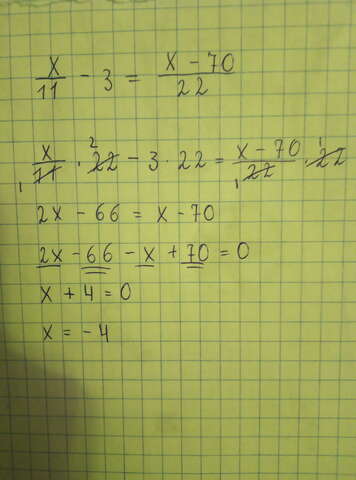 x/11 - 3 = x - 70/22
x/11 · 22 2 - 3 · 22 = x - 70/22 · 22 1
1 1
2x - 66 = x - 70
2x - 66 - x + 70 = 0
x + 4 = 0
x = - 4